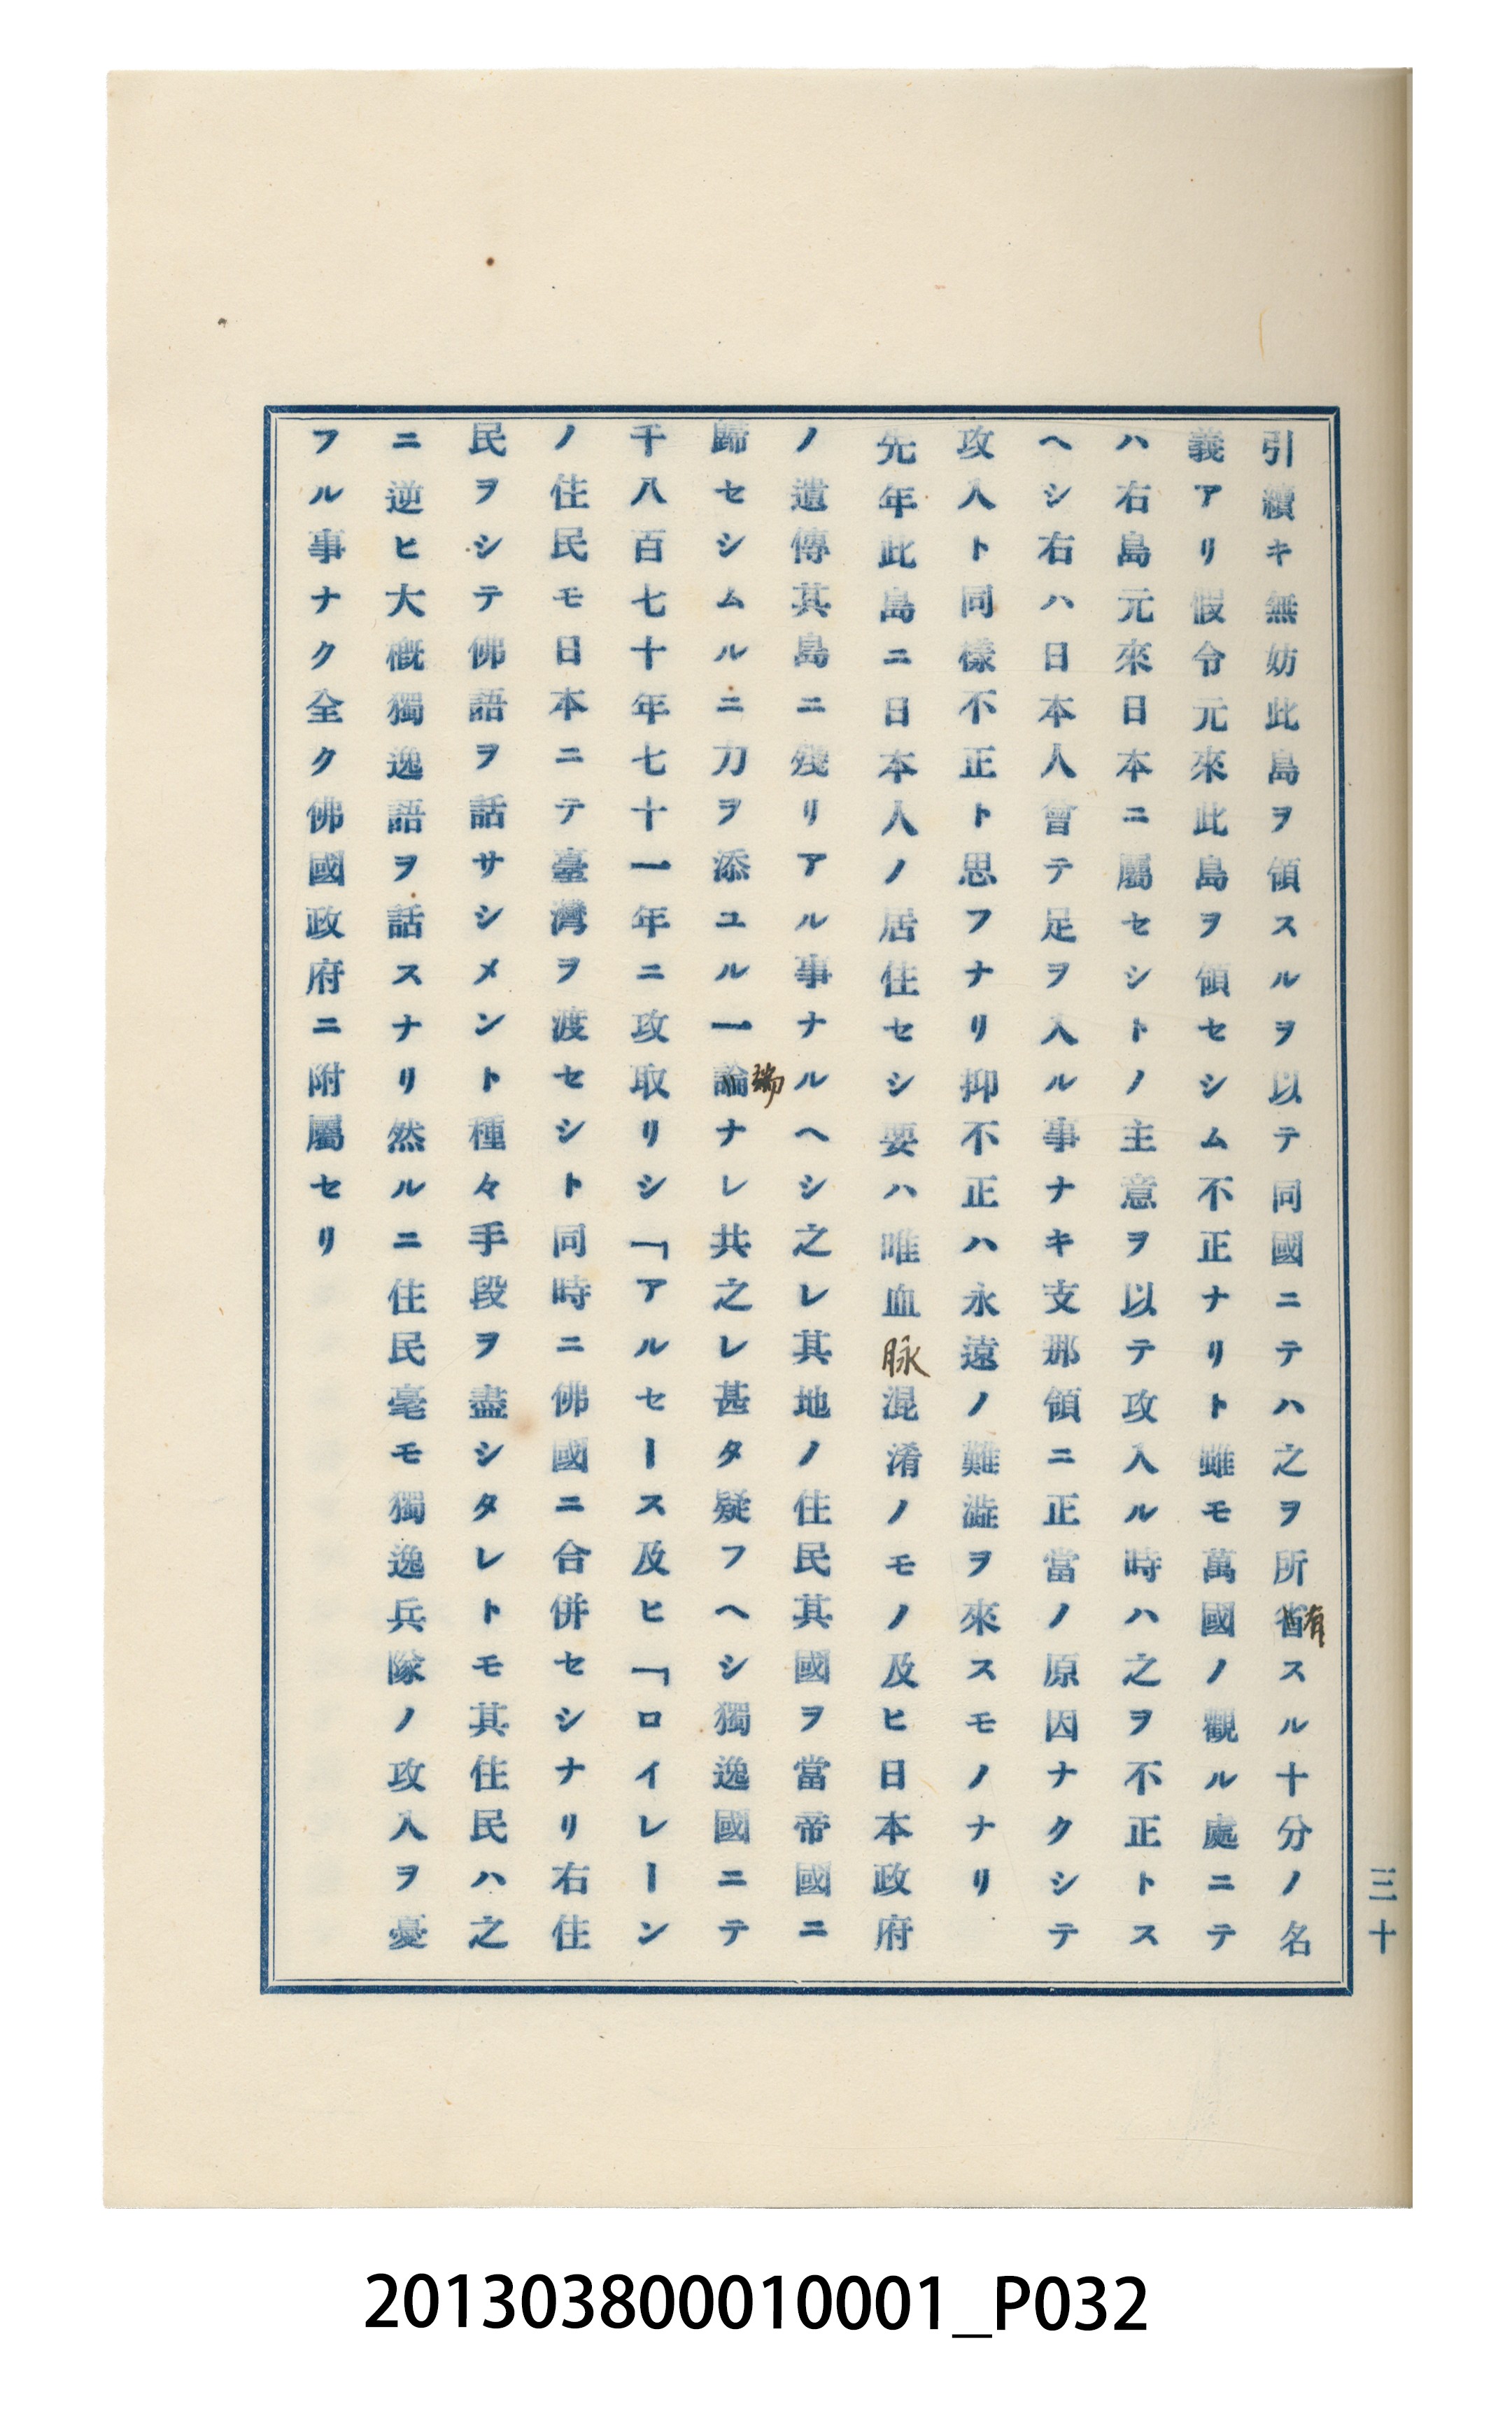 引續キ無妨此島ヲ領スルヲ以テ同國ニテハ之ヲ所省スル十分ノ名
有
義アリ假令元來此島ヲ領セシム不正ナリト雖モ萬國ノ觀ル處ニテ
ハ右島元來日本ニ屬セシトノ主意ヲ以テ攻入ル時ハ之ヲ不正トス
ヘシ右ハ日本人曾テ足ヲ入ル事ナキ支那領ニ正當ノ原因ナクシテ
攻入ト同樣不正ト思フナリ抑不正ハ永遠ノ難澁ヲ來スモノナリ
先年此島ニ日本人ノ居住セシ要ハ唯血脉混淆ノモノ及ヒ日本政府
ノ遺傳其島ニ殘リアル事ナルヘシ之レ其地ノ住民其國ヲ當帝國ニ
歸セシムルニ力ヲ添ユル一論ナレ共之レ甚タ疑フヘシ獨逸國ニテ
端
千八百七十年七十一年ニ攻取リシ「アルセース及ヒ「ロイレーン
ノ住民モ日本ニテ臺灣ヲ渡セシト同時ニ佛國ニ合併セシナリ右住
民ヲシテ佛語ヲ話サシメント種々手段ヲ盡シタレトモ其住民ハ之
ニ逆ヒ大概獨逸語ヲ話スナリ然ルニ住民毫モ獨逸兵隊ノ攻入ヲ憂
フル事ナク全ク佛國政府ニ附屬セリ
三十
201303800010001_P032